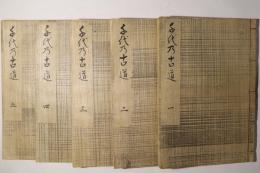 千代乃古道 一
千代乃古道 二
千代乃古道 三
千代乃古道 四
千代乃古道 五